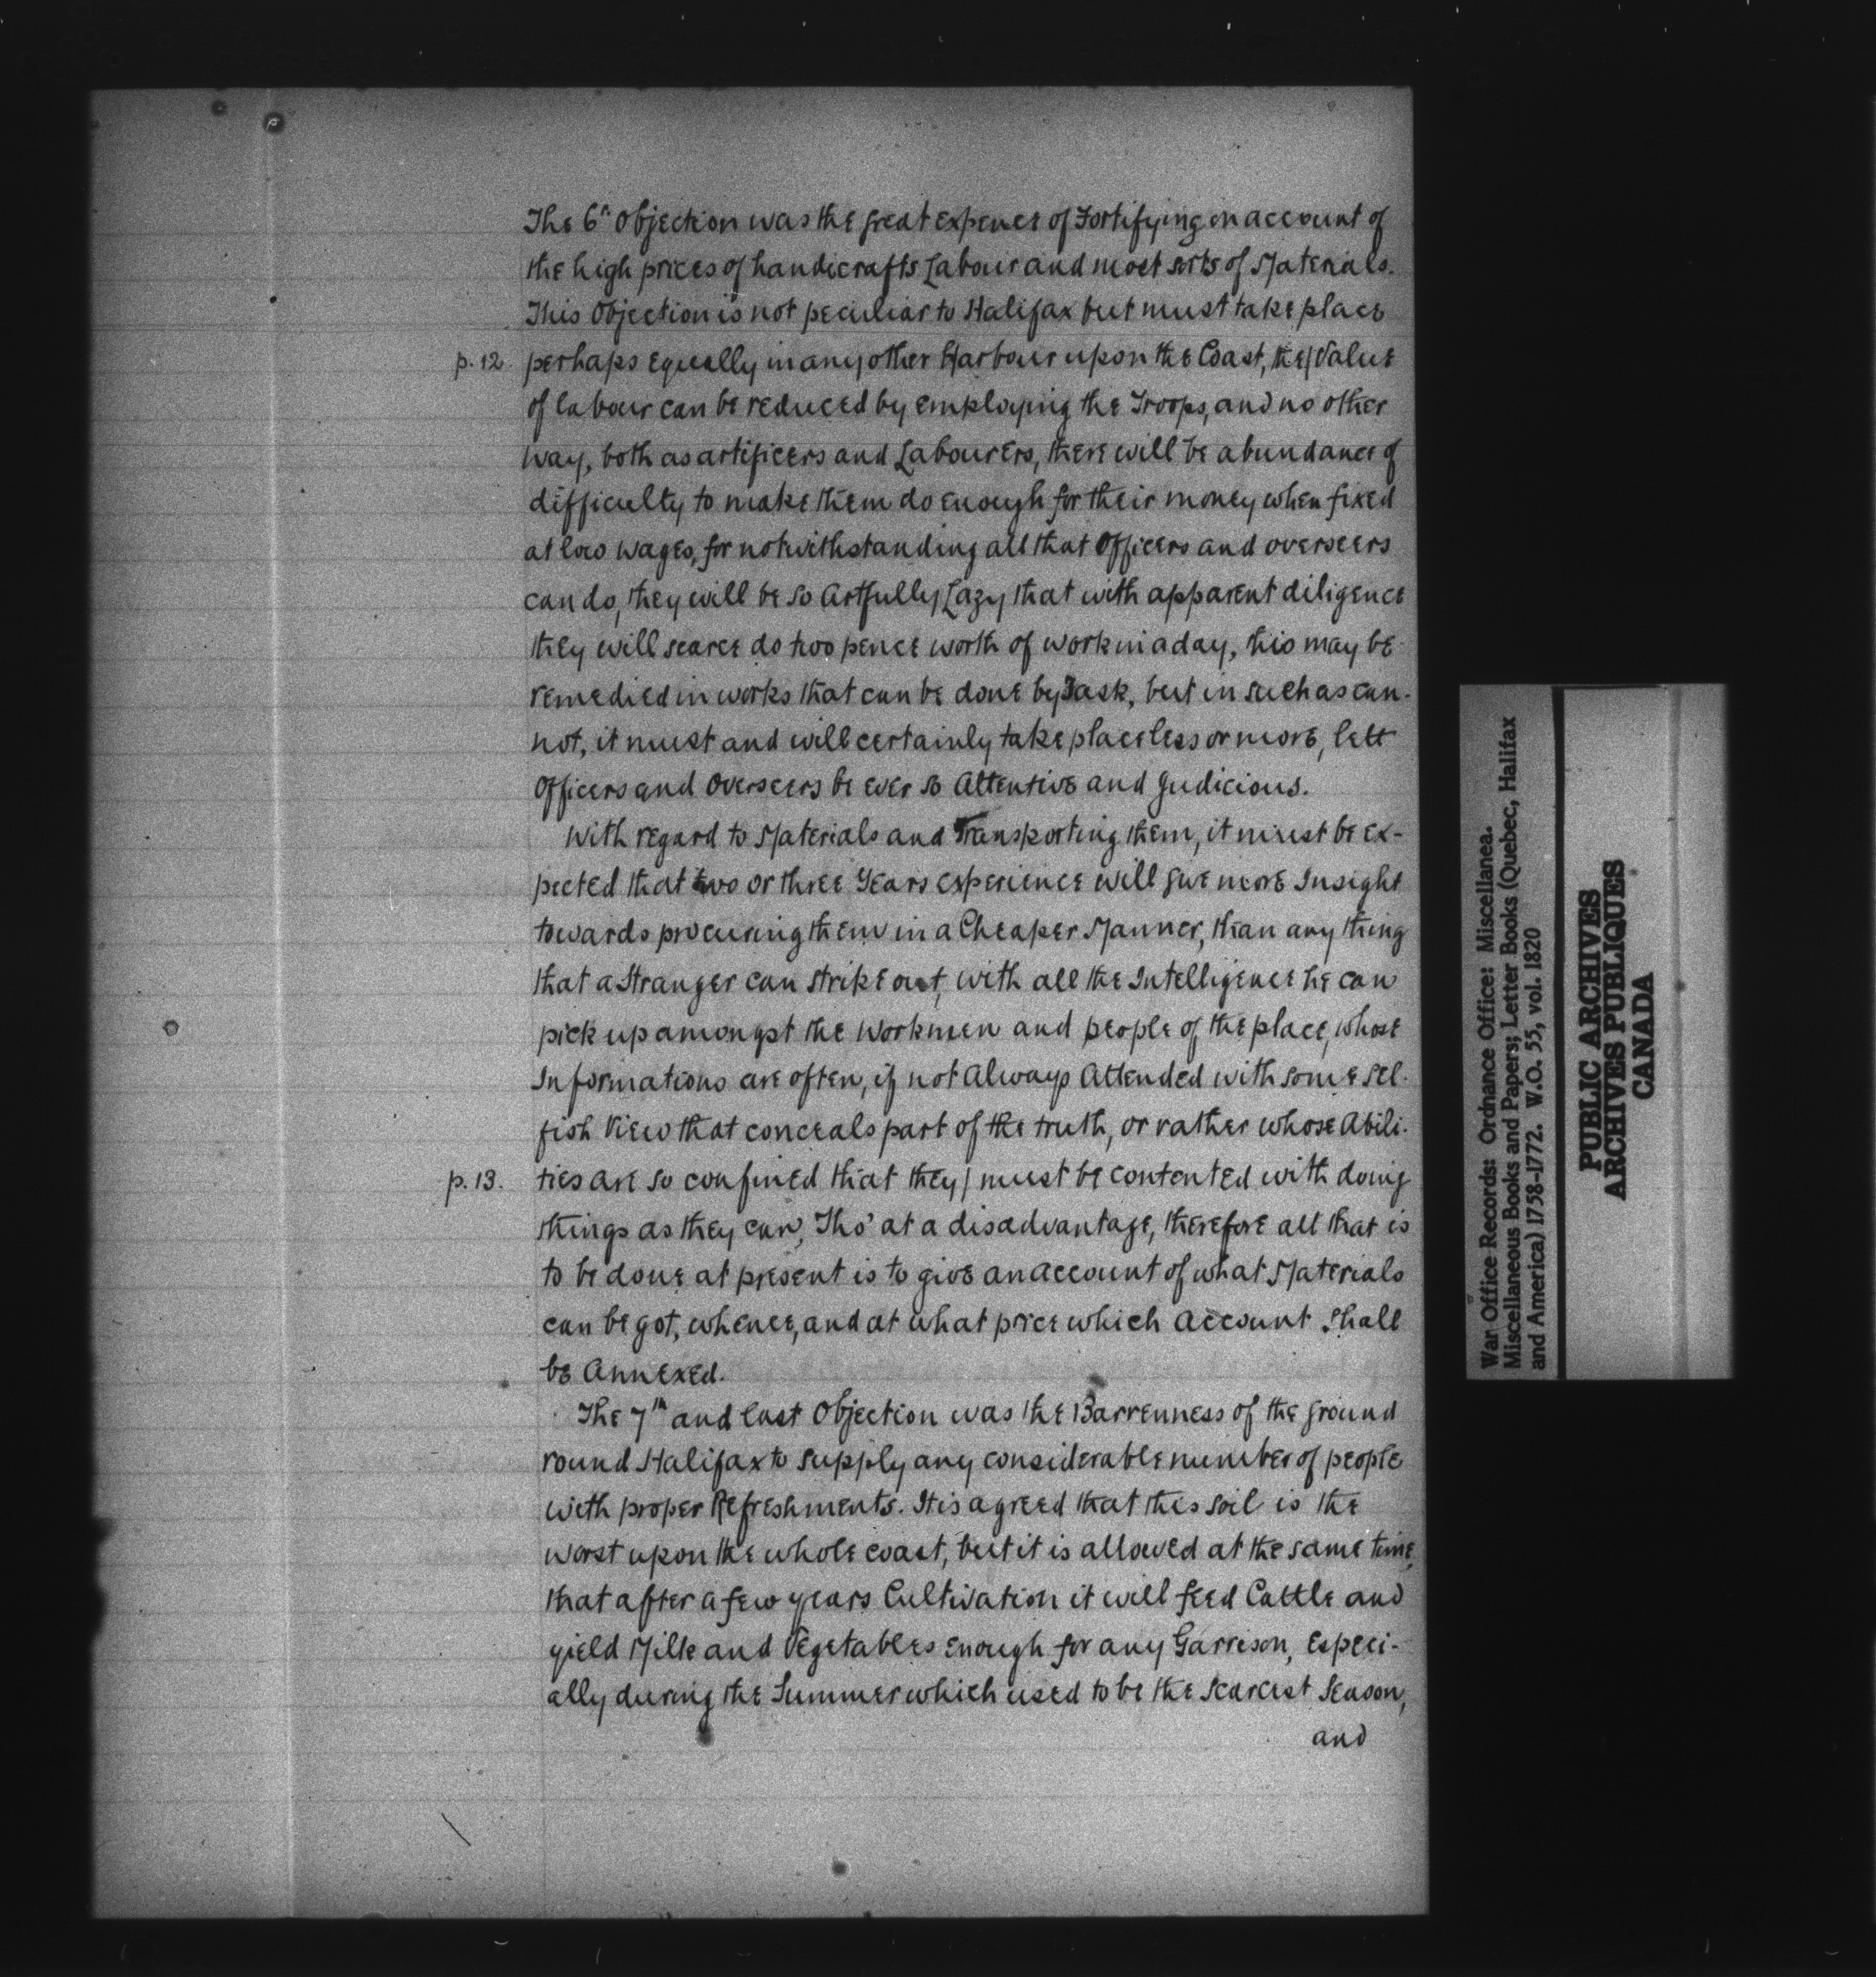 The 6th Objection was the great expence of Fortifying on account of
the high prices of handicrafts Labour and most sorts of Materials.
This Objection is not peculiar to Halifax but must take place
p. 12 perhaps equally in any other Harbour upon the Coast, the/Value
of labour can be reduced by employing the Troops, and no other
way, both as artificers and Labourers, there will be abundance of
difficulty to make them do enough for their money when fixed
at low wages, for notwithstanding all that Officers and overseers
can do, they will be so Artfully Lazy that with apparent diligence
they will scarce do two pence worth of work in a day, this may be
remedied in works that can be done by Task, but in such as can-
not, it must and will certainly take place less or more, lett
Officers and Overseers be ever so Attentive and Judicious.
With regard to Materials and Transporting them, it must be ex-
pected that two or three Years experience will give more Insight
towards procuring them in a Cheaper Manner, than any thing
that a Stranger can strike out, with all the Intelligence he can
pick up amongst the Workmen and people of the place, whose
Informations are often, if not Always Attended with some sel-
fish View that conceals part of the truth, or rather whose Abili-
p. 13. ties are so confined that they/ must be contented with doing
things as they can, Tho' at a disadvantage, therefore all that is
to be done at present is to give an account of what Materials
can be got, whence, and at what price which Account shall
be Annexed.
The 7th and last Objection was the Barrenness of the ground
round Halifax to supply any considerable number of people
with proper Refreshments. It is agreed that this soil is the
worst upon the whole coast, but it is allowed at the same time,
that after a few years Cultivation it will feed Cattle and
yield Milk and Vegetables enough for any Garrison, Especi-
ally during the Summer which used to be the Scarcest Season,
and
War Office Records: Ordnance Office: Miscellanea.
Miscellaneous Books and Papers; Letter Books (Quebec, Halifax
and America) 1758-1772. W.O. 55, vol. 1820
PUBLIC ARCHIVES
ARCHIVES PUBLIQUES
CANADA